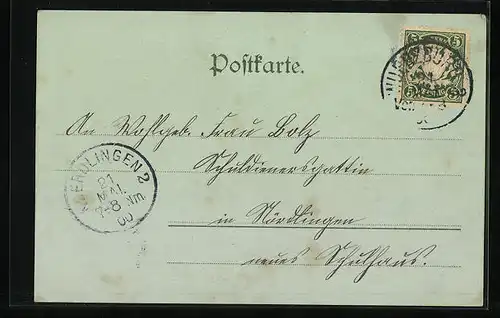 5 5
Postkarte.
An Wohlgeb. Frau Bolz
Schuldienersgattin
in Nördlingen
neues Schulhaus.
NOERDLINGEN 2
21
MAI.
7-8 Nm
00